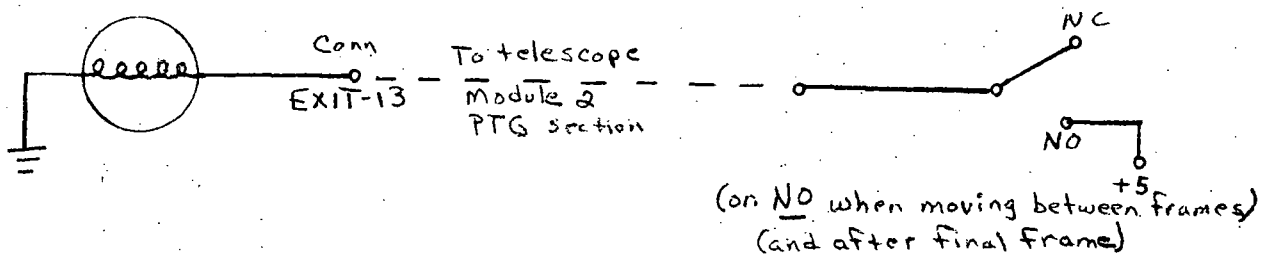 Conn
EXIT-13
To telescope
Module 2
PTG section
NC
NO
+5
(on NO when moving between frames)
(and after final frame)